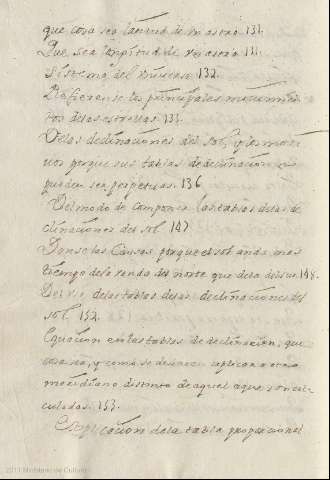 que cosa sea latitud de un astro 131.
Que sea longitud de un astro 131.
Sistema del universo 132.
Refierense los principales movimien
tos de las estrellas 133.
De las declinaciones del sol, y los moti
vos porque sus tablas de declinacion no
pueden ser perpetuas. 136
Del modo de componer las tablas de las de
clinaciones del sol 147
Danse las Causas porque el sol anda mas
tiempo de la vanda del norte que de la del sur. 148.
Del uso de las tablas de las declinaciones del
sol. 152.
Equacion en las tablas de declinacion, que
cosa sea, y como se deva aplicar a otro
meridiano distinto de aquel a que son cal
culadas. 153.
Explicacion de la tabla proporcional
2011 Ministerio de Cultura